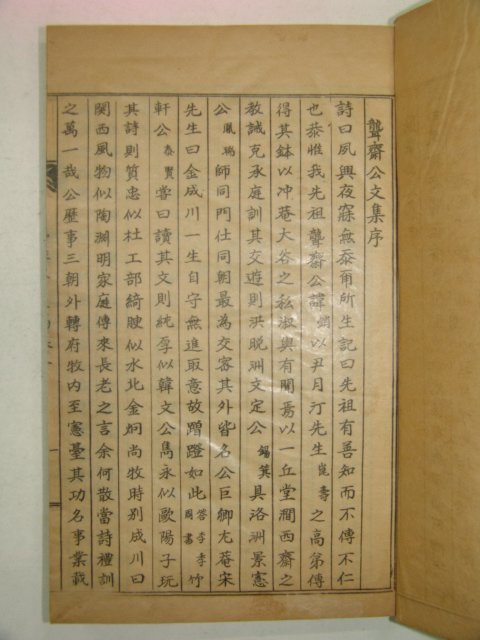 聾齋公文集序
詩曰夙興夜寐無忝甭所生記曰先祖有善知而不傳不仁
也恭惟我先祖聾齋公諱 以尹月汀先生 崑壽 之高弟傳
得其鉢以冲菴大谷之私淑與有聞焉以一丘堂澗西齋之
教誠克承庭訓其交遊則洪晩洲文定公 錫箕 具洛洲景憲
公 鳳瑞 師同門仕同朝最為交客其外皆名公巨卿尤菴宋
先生曰金成川一生自守無進取意故蹭蹬如此 答李季周書 竹
軒公 泰賢 嘗曰讀其文則純厚似韓文公雋永似歐陽子玩
其詩則質忠似杜工部綺 似水北金炯尚牧時別成川曰
關西風物似陶淵明家庭傳來長老之言余何散當詩禮訓
之萬一哉公歷事三朝外轉府牧內至憲臺其功名事業載